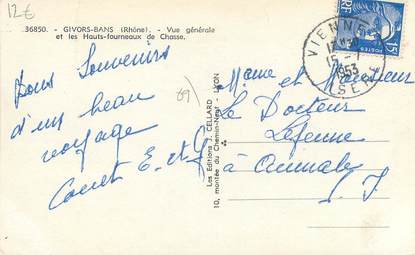 12€
36850. - GIVORS-BANS (Rhône). - Vue générale
et les Hauts-fourneaux de Chasse.
Bons Souvenirs
d'un beau
voyage
E. et
69)
Les Editions J. CELLARD
10, montée du Chemin-Neuf - LYON
RF
15f
POSTES
VIENNE
15 - 1
1953
ISERE
Mme et Monsieur
Le Docteur
Lejeune
à Aumale
S. I